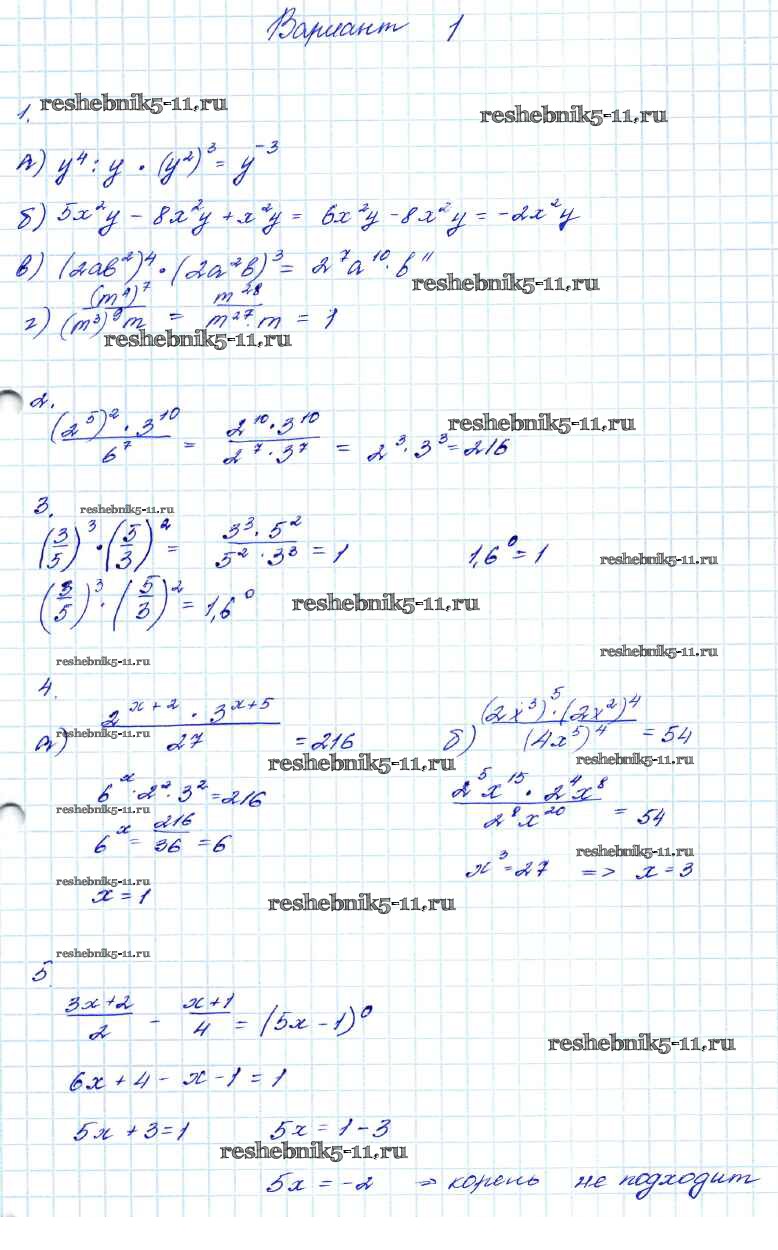 Вариант 1
reshebnik5-11.ru
reshebnik5-11.ru
1.
а) y⁴ : y · (y²)³ = y⁻³
б) 5x²y − 8x²y + x²y = 6x²y − 8x²y = −2x²y
в) (2ab²)⁴ · (2a²b)³ = 2⁷a¹⁰ · b¹¹
reshebnik5-11.ru
г) (m⁴)⁷ / (m³)⁹m = m²⁸ / m²⁷ · m = 1
reshebnik5-11.ru
2.
(2⁵)² · 3¹⁰ / 6⁷ = 2¹⁰ · 3¹⁰ / 2⁷ · 3⁷ = 2³ · 3³ = 216
reshebnik5-11.ru
3.
reshebnik5-11.ru
(3/5)³ · (5/3)² = 3³ · 5² / 5² · 3³ = 1 1,6⁰ = 1
reshebnik5-11.ru
(3/5)³ · (5/3)² = 1,6⁰
reshebnik5-11.ru
reshebnik5-11.ru
reshebnik5-11.ru
4.
а) 2ˣ⁺² · 3ˣ⁺⁵ / 27 = 216
reshebnik5-11.ru
reshebnik5-11.ru
6ˣ · 2² · 3² = 216
reshebnik5-11.ru
6ˣ = 216 / 36 = 6
reshebnik5-11.ru
x = 1
reshebnik5-11.ru
б) (2x³)⁵ · (2x²)⁴ / (4x⁵)⁴ = 54
reshebnik5-11.ru
2⁵x¹⁵ · 2⁴x⁸ / 2⁸x²⁰ = 54
reshebnik5-11.ru
x³ = 27 => x = 3
reshebnik5-11.ru
5
(3x + 2)/2 − (x + 1)/4 = (5x − 1)⁰
reshebnik5-11.ru
6x + 4 − x − 1 = 1
5x + 3 = 1 5x = 1 − 3
reshebnik5-11.ru
5x = −2 => корень не подходит